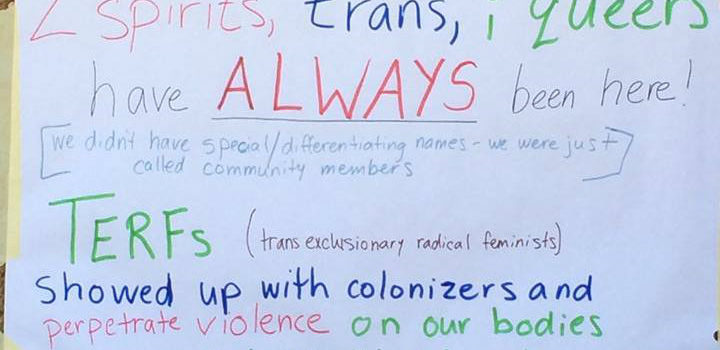 2 spirits, trans, i queers
have ALWAYS been here!
[we didn't have special/differentiating names - we were just
called community members]
TERFs (trans exclusionary radical feminists)
Showed up with colonizers and
perpetrate violence on our bodies